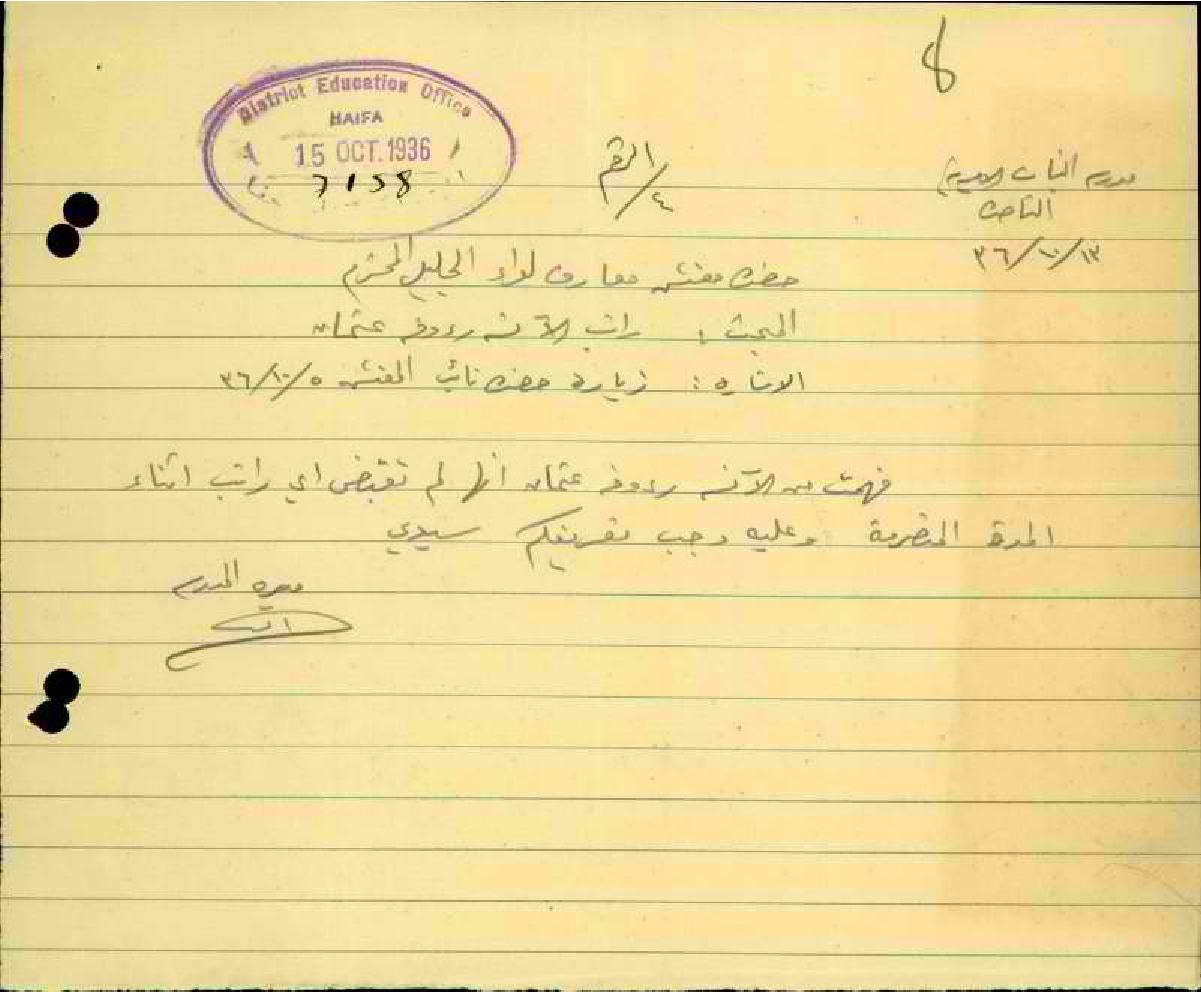 8
District Education Office
HAIFA
15 OCT. 1936
7158
الرقم
/٤
مدرسة البنات الاميرية
الناصرة
٣٦/١٠/١٣
حضرة مفتش معارف لواء الجليل المحترم
المبحث : راتب الآنسة رءوفة عثمان
الاشارة : زيارة حضرة نائب المفتش ٣٦/١٠/٥
فهمت من الآنسة رءوفة عثمان انها لم تقبض اي راتب اثناء
المدة المنصرمة وعليه وجب تعريفكم سيدي
مديرة المدرسة